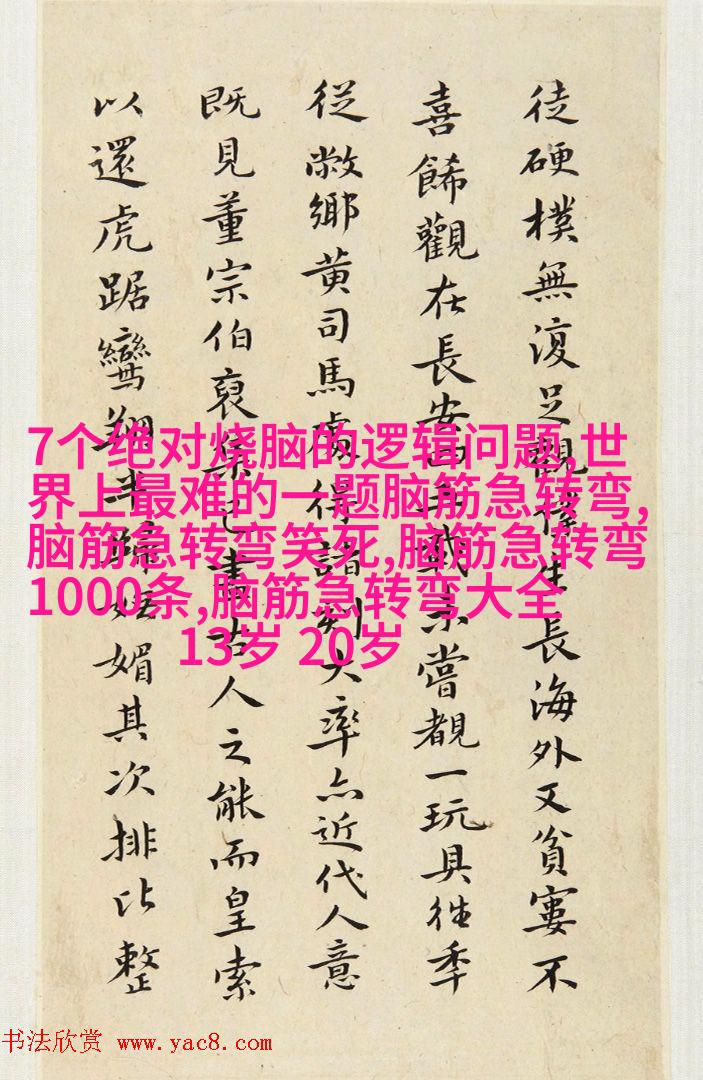 徒硬樸無復足觀僕生長海外又貧窶不
喜餙觀在長安未嘗覩一玩具徃季
從敝鄉黃司馬處得諸刻大率亦近代人意
既見董宗伯裒集已盡古人之能而皇索
以還虎踞鸞翔媚其次排比整
7个绝对烧脑的逻辑问题,世
界上最难的一题脑筋急转弯,
脑筋急转弯笑死,脑筋急转弯
1000条,脑筋急转弯大全
13岁 20岁
书法欣赏 www.yac8.com